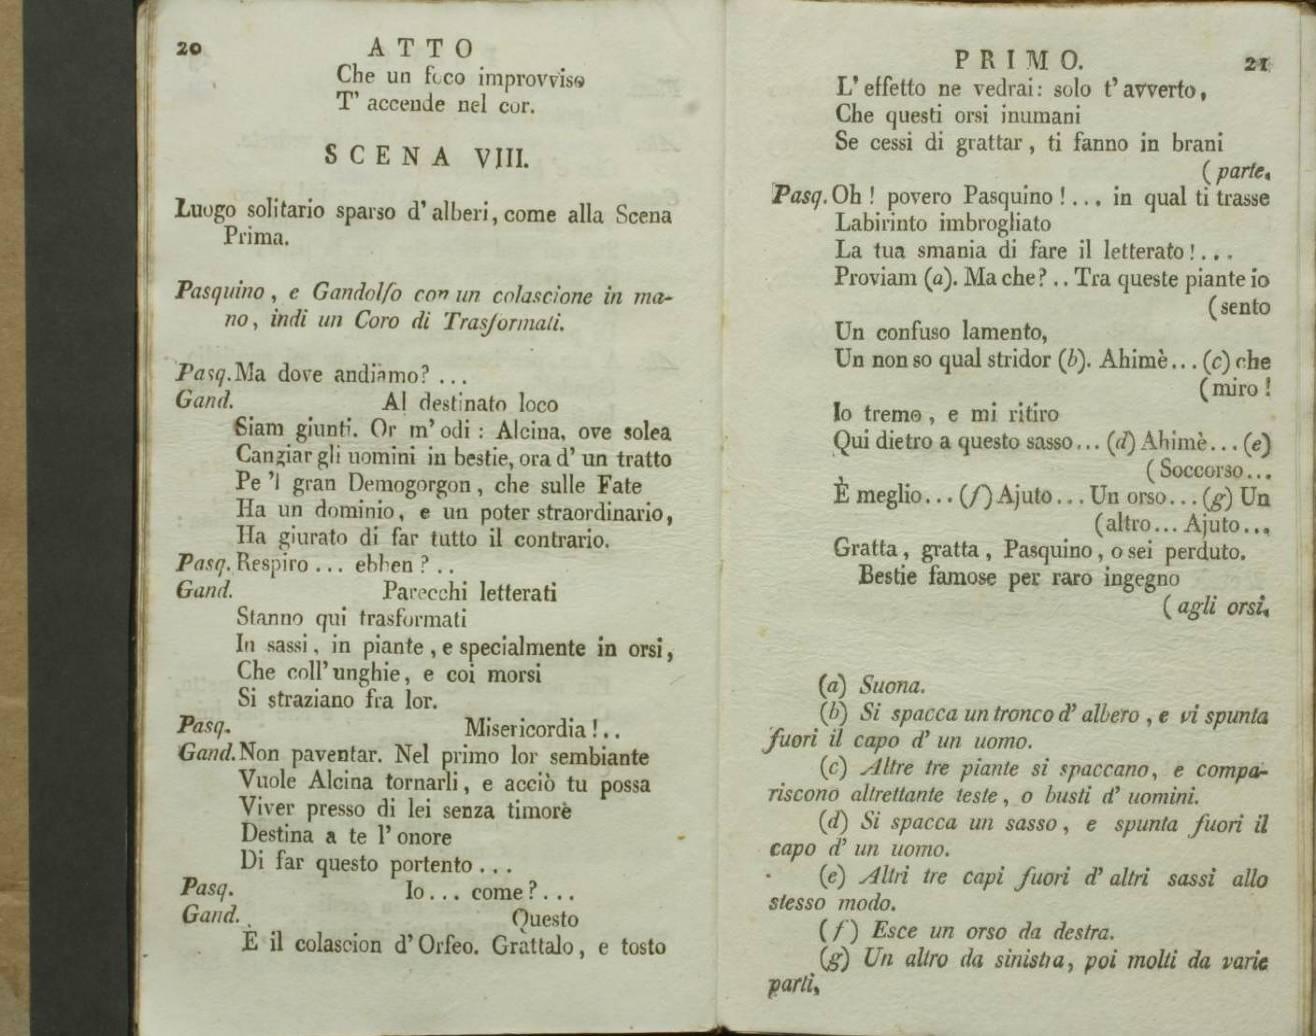 20
ATTO
Che un foco improvviso
T' accende nel cor.
SCENA VIII.
Luogo solitario sparso d' alberi, come alla Scena
Prima.
Pasquino, e Gandolfo con un colascione in ma-
no, indi un Coro di Trasformati.
Pasq. Ma dove andiamo? ...
Gand. Al destinato loco
Siam giunti. Or m' odi: Alcina, ove solea
Cangiar gli uomini in bestie, ora d' un tratto
Pe 'l gran Demogorgon, che sulle Fate
Ha un dominio, e un poter straordinario,
Ha giurato di far tutto il contrario.
Pasq. Respiro ... ebben? ..
Gand. Parecchi letterati
Stanno qui trasformati
In sassi, in piante, e specialmente in orsi,
Che coll' unghie, e coi morsi
Si straziano fra lor.
Pasq. Misericordia!..
Gand. Non paventar. Nel primo lor sembiante
Vuole Alcina tornarli, e acciò tu possa
Viver presso di lei senza timore
Destina a te l' onore
Di far questo portento ...
Pasq. Io ... come? ...
Gand. Questo
È il colascion d' Orfeo. Grattalo, e tosto
PRIMO.
21
L' effetto ne vedrai: solo t' avverto,
Che questi orsi inumani
Se cessi di grattar, ti fanno in brani
(parte.
Pasq. Oh! povero Pasquino!... in qual ti trasse
Labirinto imbrogliato
La tua smania di fare il letterato!...
Proviam (a). Ma che? .. Tra queste piante io
(sento
Un confuso lamento,
Un non so qual stridor (b). Ahimè... (c) che
(miro!
Io tremo, e mi ritiro
Qui dietro a questo sasso... (d) Ahimè... (e)
(Soccorso...
È meglio... (f) Ajuto... Un orso... (g) Un
(altro... Ajuto...
Gratta, gratta, Pasquino, o sei perduto.
Bestie famose per raro ingegno
(agli orsi.
(a) Suona.
(b) Si spacca un tronco d' albero, e vi spunta
fuori il capo d' un uomo.
(c) Altre tre piante si spaccano, e compa-
riscono altrettante teste, o busti d' uomini.
(d) Si spacca un sasso, e spunta fuori il
capo d' un uomo.
(e) Altri tre capi fuori d' altri sassi allo
stesso modo.
(f) Esce un orso da destra.
(g) Un altro da sinistra, poi molti da varie
parti,